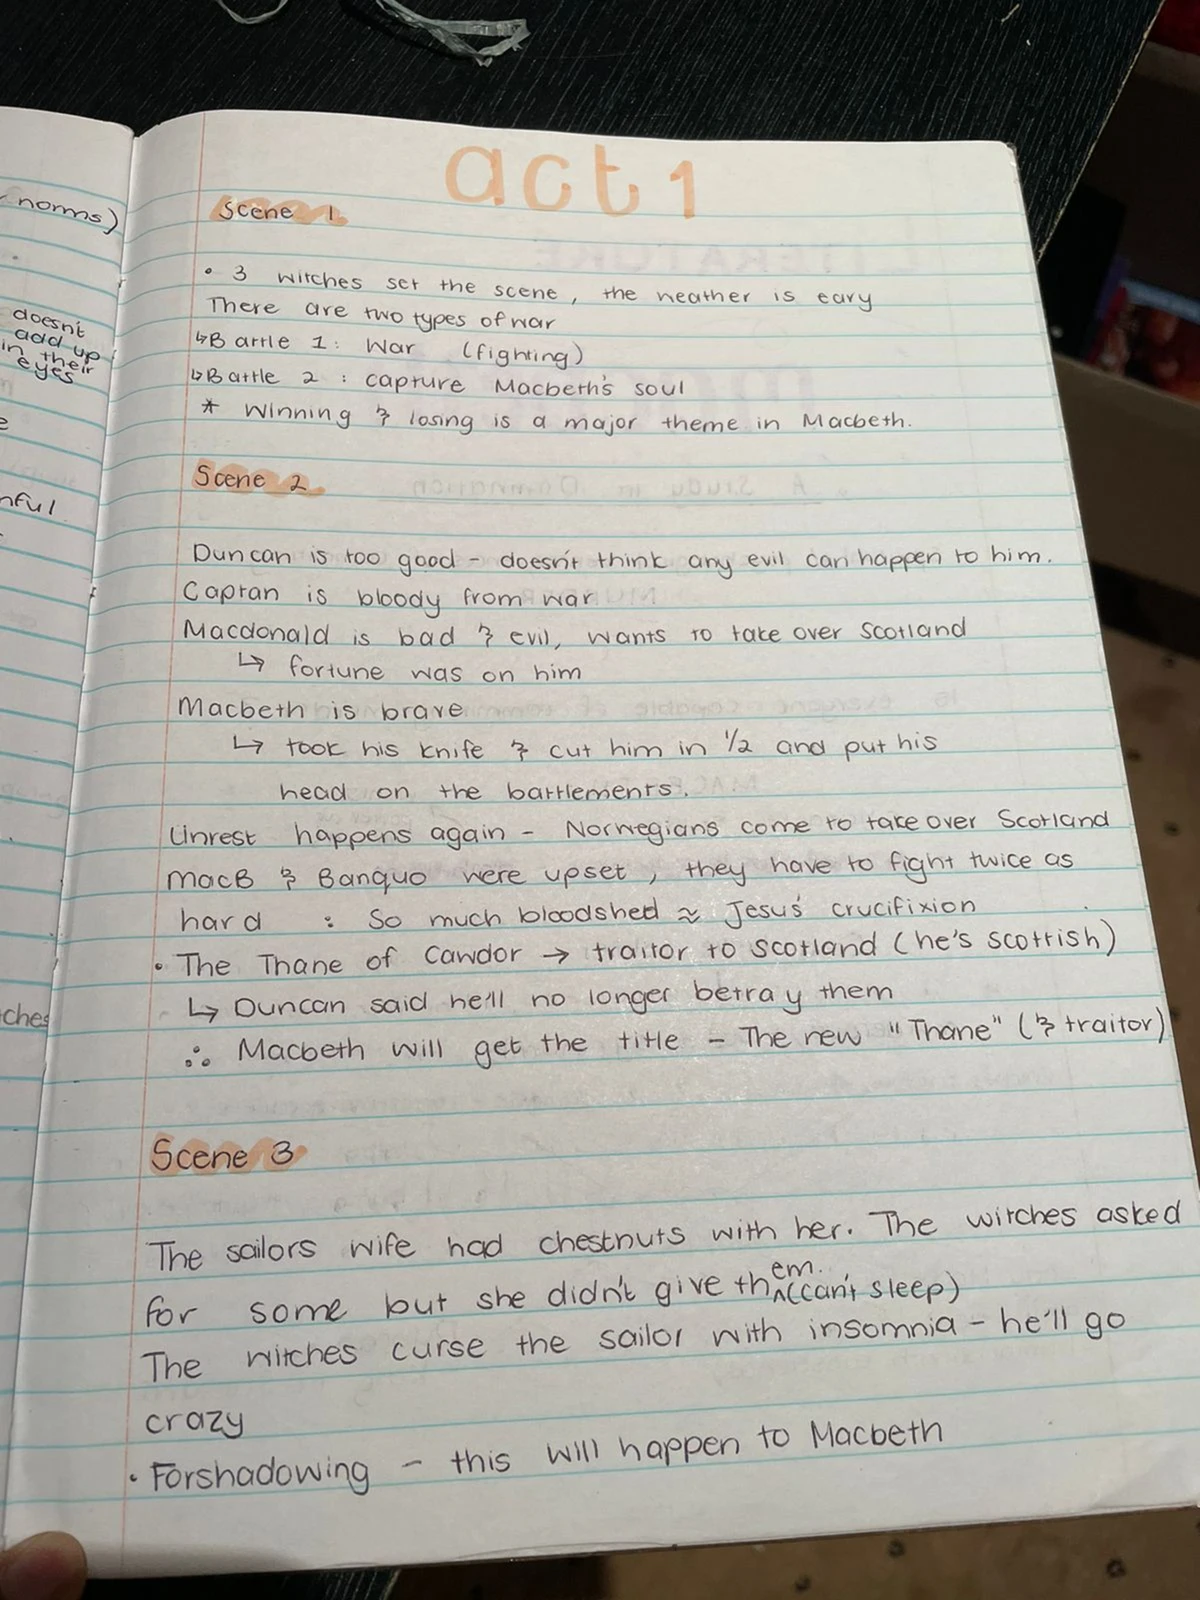 act 1
Scene 1
• 3 witches set the scene, the weather is eary
There are two types of war
↳Battle 1: War (fighting)
↳Battle 2: capture Macbeth's soul
* Winning & losing is a major theme in Macbeth.
Scene 2
Duncan is too good - doesn't think any evil can happen to him.
Captan is bloody from war
Macdonald is bad & evil, wants to take over Scotland
↳ fortune was on him
Macbeth is brave
↳ took his knife & cut him in 1/2 and put his
head on the battlements.
Unrest happens again - Norwegians come to take over Scotland
MacB & Banquo were upset, they have to fight twice as
hard : So much bloodshed ≈ Jesus' crucifixion
• The Thane of Cawdor → traitor to Scotland (he's scottish)
↳ Duncan said he'll no longer betray them
∴ Macbeth will get the title - The new "Thane" (& traitor)
Scene 3
The sailors wife had chestnuts with her. The witches asked
for some but she didn't give them. (can't sleep)
The witches curse the sailor with insomnia - he'll go
crazy
• Forshadowing - this will happen to Macbeth
norms)
doesn't
add up
in their
eyes